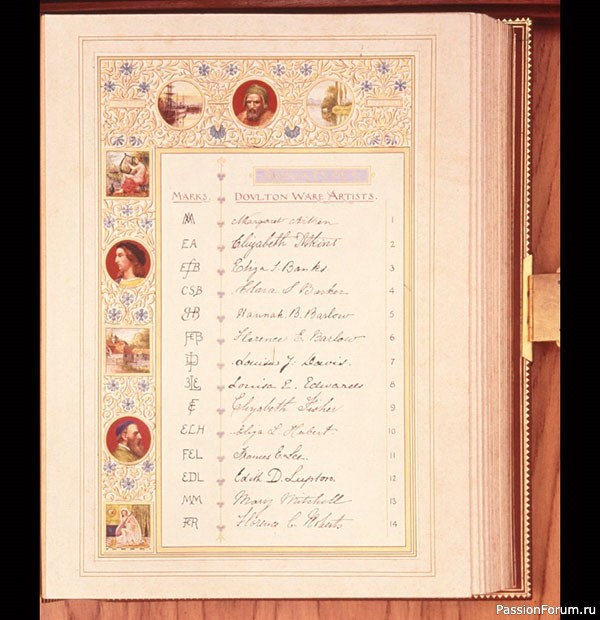 MARKS. DOVLTON WARE ARTISTS.
Margaret Aitken 1
EA Elizabeth Atkins 2
EfB Eliza S. Banks 3
CSB Clara S Barker 4
HB Hannah B. Barlow 5
FEB Florence E Barlow 6
Louisa J. Davis. 7
LE Louisa E. Edwards 8
EF Elizabeth Fisher 9
ELH Eliza L Hubert 10
FEL Frances E. Lee 11
EDL Edith D. Lupton 12
MM Mary Mitchell 13
FR Florence C. Roberts 14
PassionForum.ru